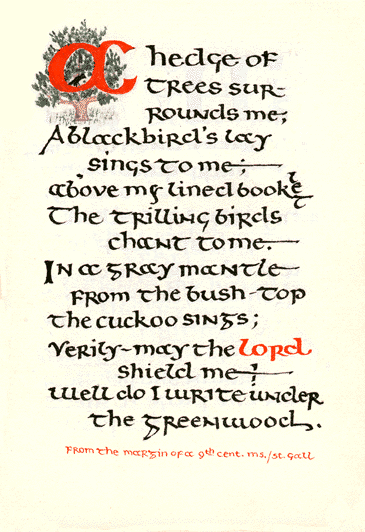 A hedge of
trees sur-
rounds me;
A blackbird's lay
sings to me;
above my lined booklet
The trilling birds
chant to me.
In a gray mantle
from the bush-top
the cuckoo sings;
Verily-may the Lord
shield me!
well do I write under
the greenwood.
From the margin of a 9th cent. ms./St. Gall